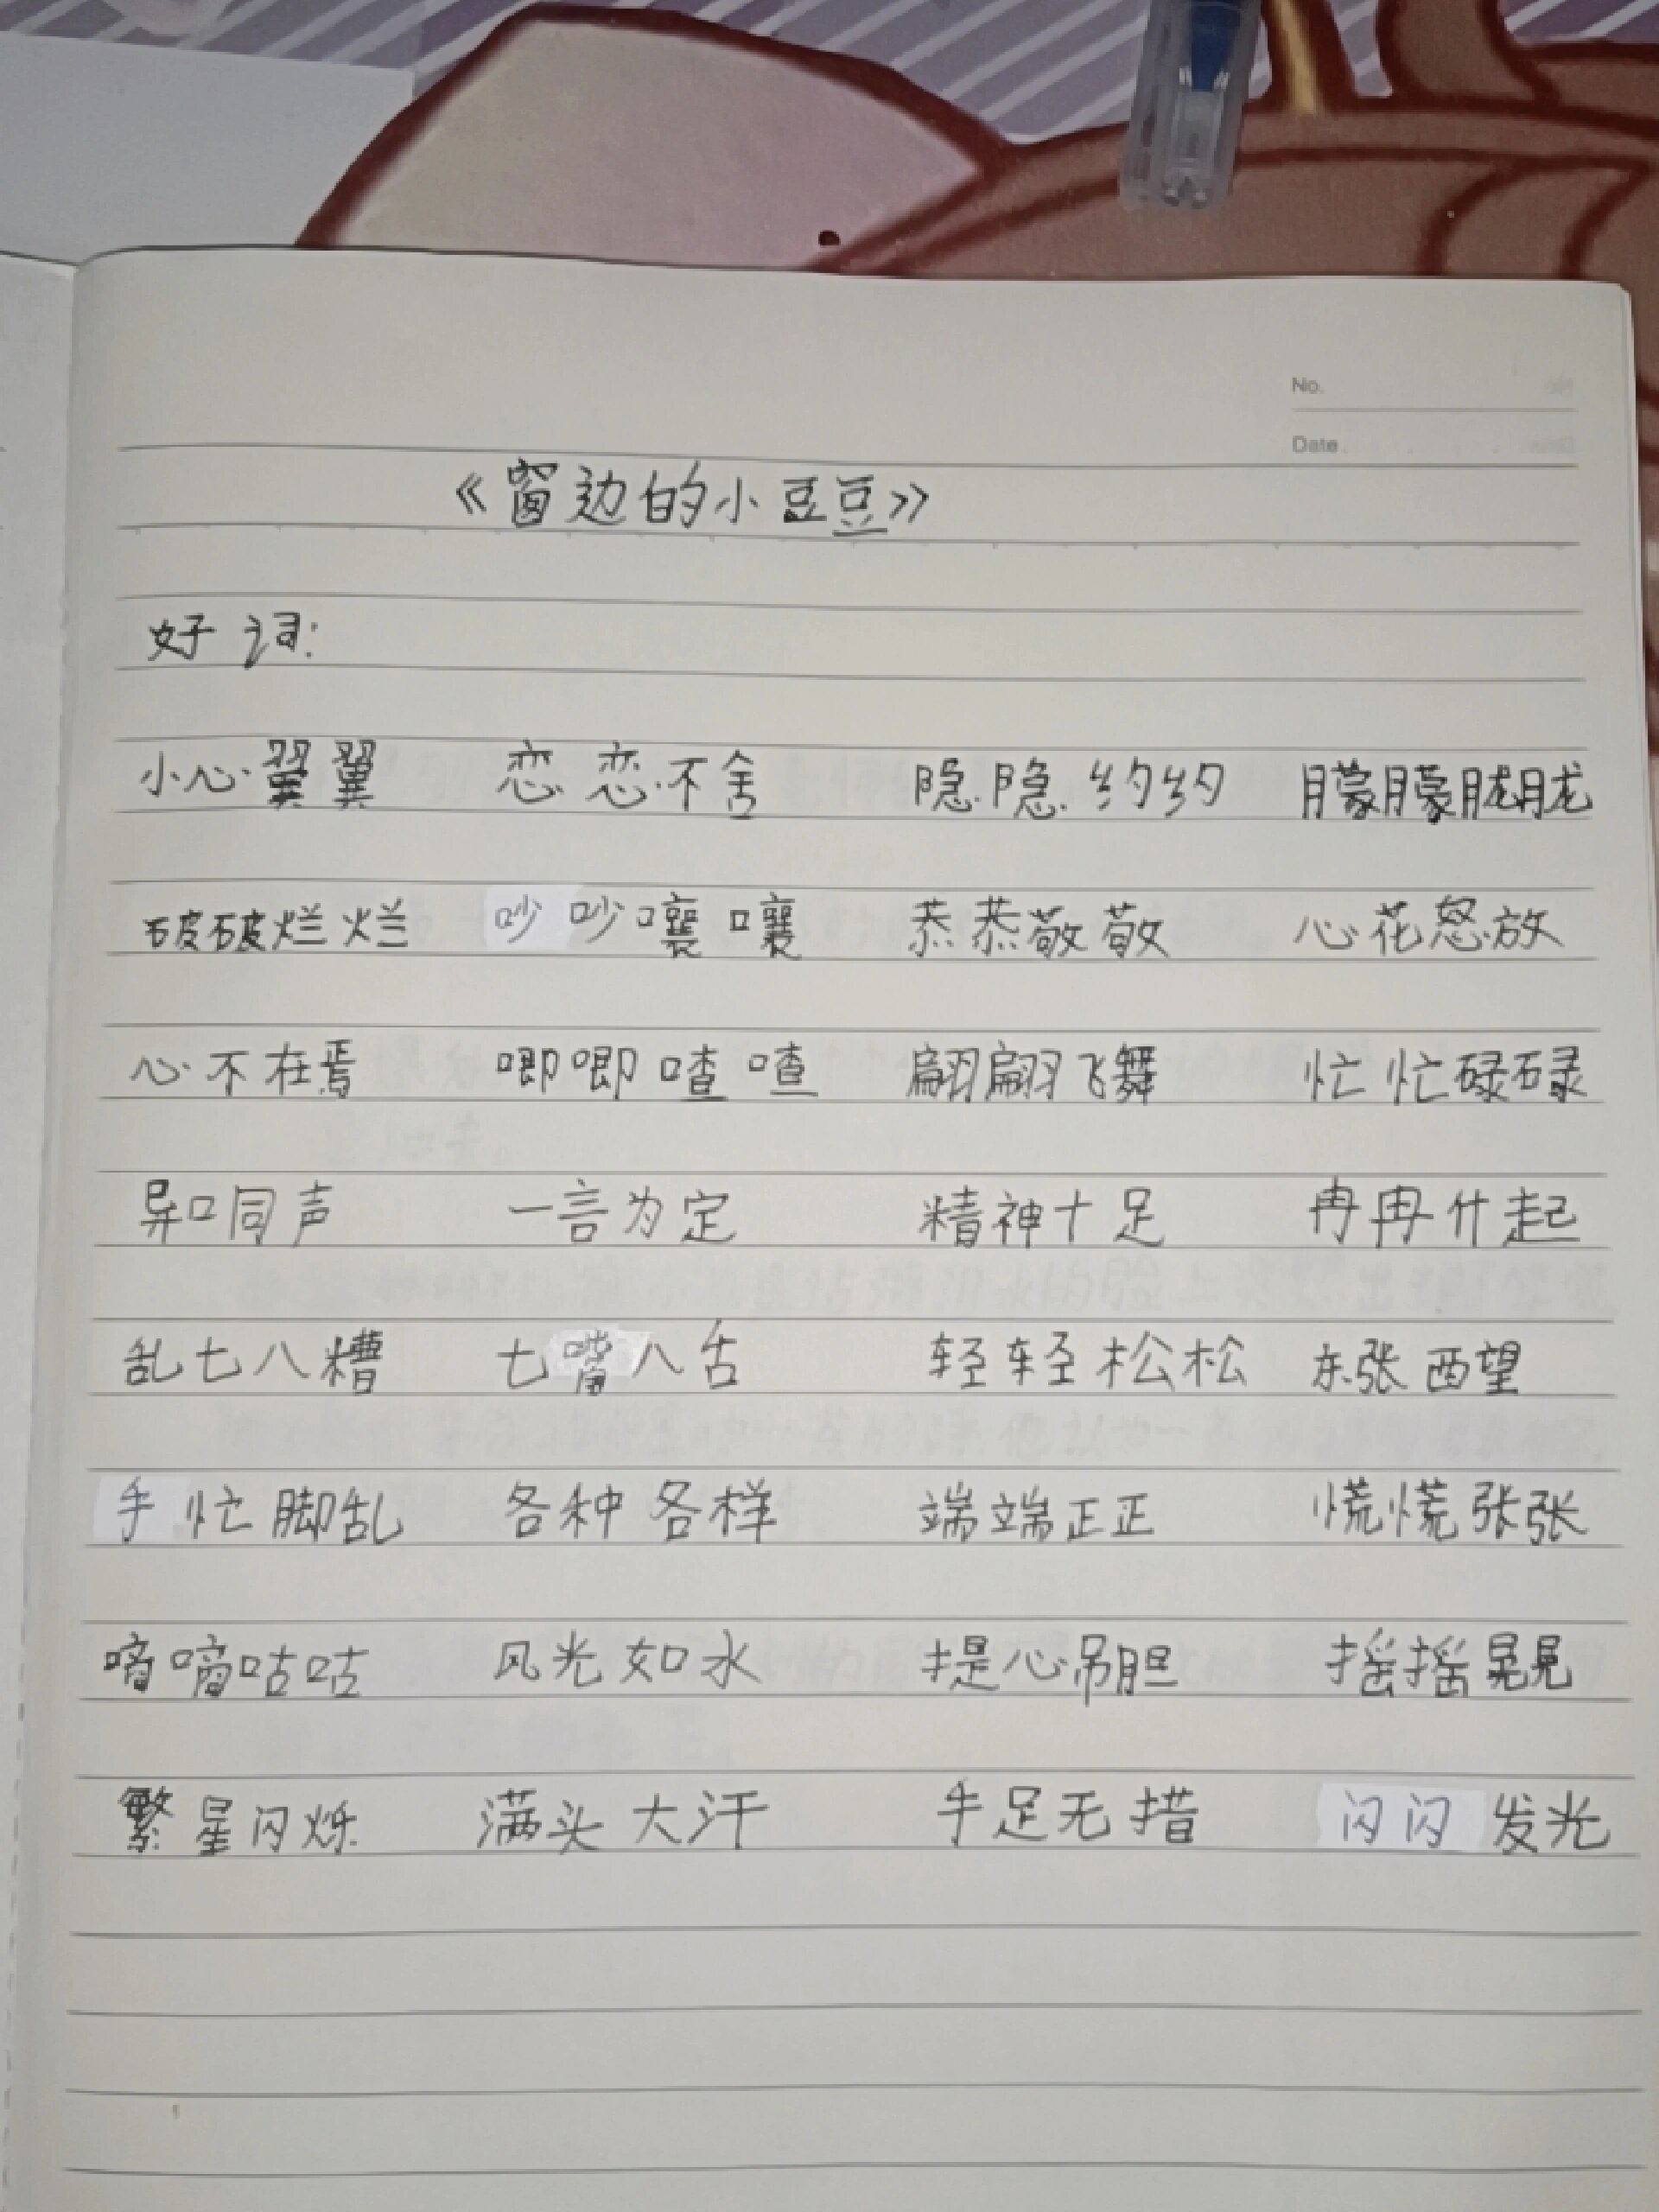 No.
Date.
《窗边的小豆豆》
好词:
小心翼翼 恋恋不舍 隐隐约约 朦朦胧胧
破破烂烂 吵吵嚷嚷 恭恭敬敬 心花怒放
心不在焉 唧唧喳喳 翩翩飞舞 忙忙碌碌
异口同声 一言为定 精神十足 冉冉升起
乱七八糟 七嘴八舌 轻轻松松 东张西望
手忙脚乱 各种各样 端端正正 慌慌张张
嘀嘀咕咕 风光如水 提心吊胆 摇摇晃晃
繁星闪烁 满头大汗 手足无措 闪闪发光